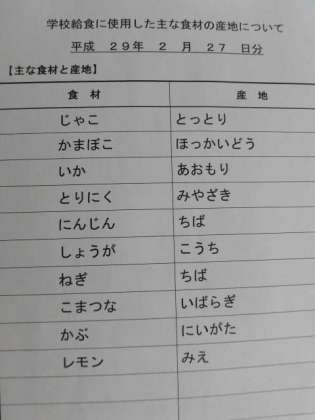 学校給食に使用した主な食材の産地について
平成 29年 2 月 27 日分
【主な食材と産地】
食 材 産 地
じゃこ とっとり
かまぼこ ほっかいどう
いか あおもり
とりにく みやざき
にんじん ちば
しょうが こうち
ねぎ ちば
こまつな いばらぎ
かぶ にいがた
レモン みえ